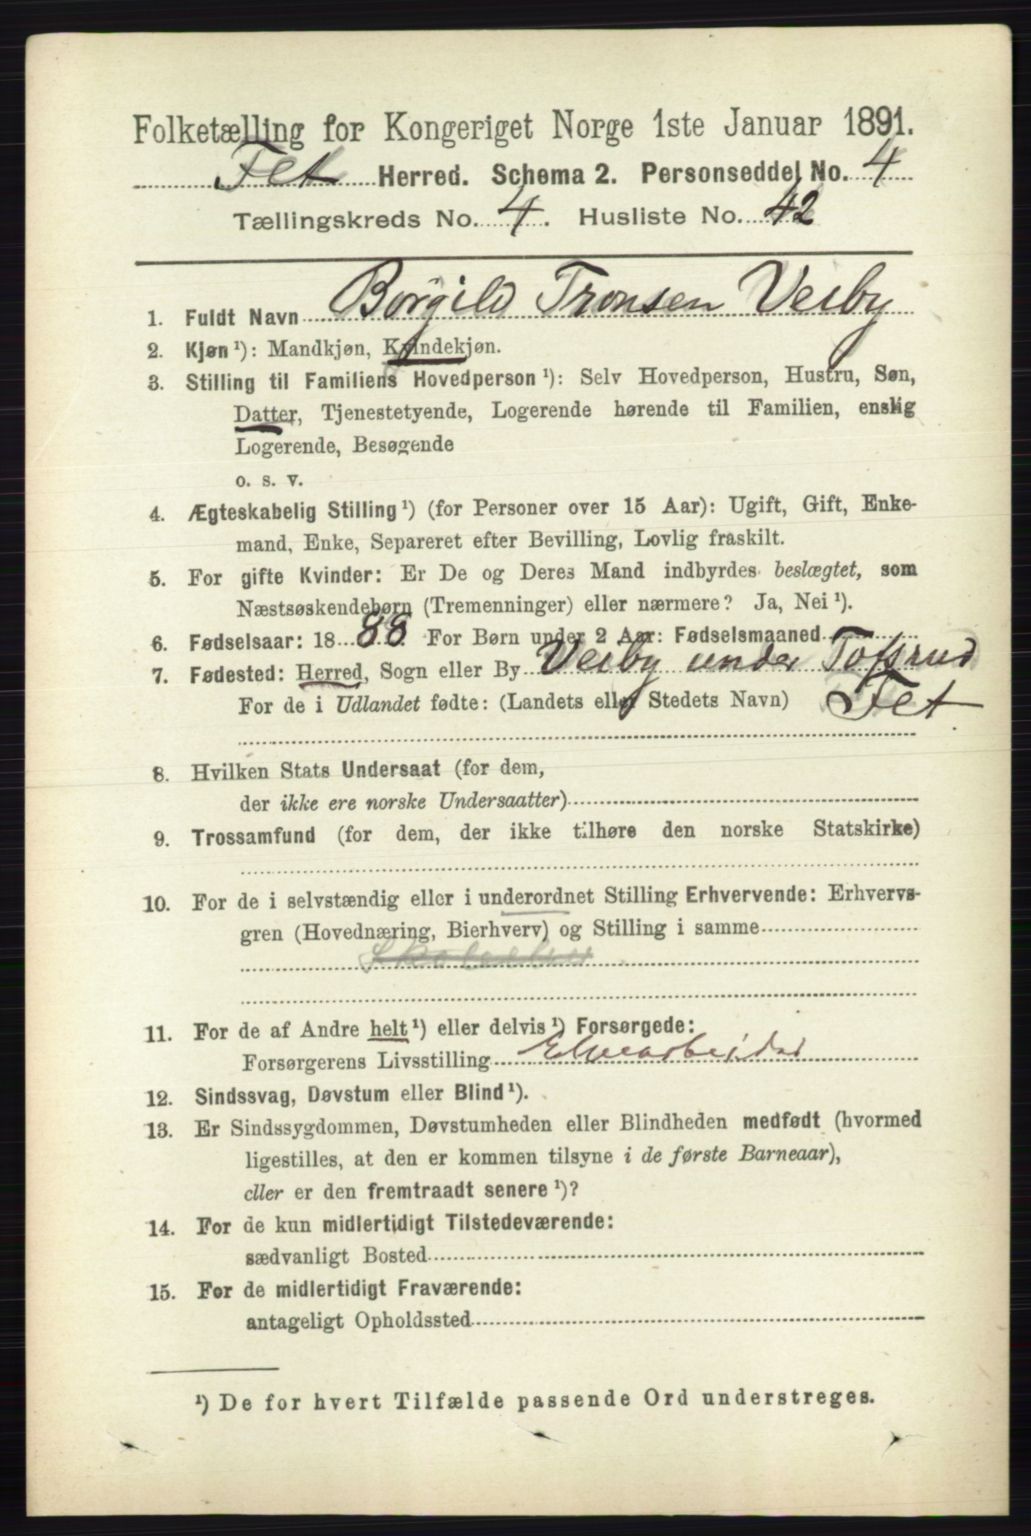 Folketælling for Kongeriget Norge 1ste Januar 1891.
Fet Herred. Schema 2. Personseddel No. 4
Tællingskreds No. 4. Husliste No. 42
1. Fuldt Navn Borgild Tronsen Verby
2. Kjøn ¹): Mandkjøn, Kvindekjøn.
3. Stilling til Familiens Hovedperson ¹): Selv Hovedperson, Hustru, Søn,
Datter, Tjenestetyende, Logerende hørende til Familien, enslig
Logerende, Besøgende
o. s. v.
4. Ægteskabelig Stilling ¹) (for Personer over 15 Aar): Ugift, Gift, Enke-
mand, Enke, Separeret efter Bevilling, Lovlig fraskilt.
5. For gifte Kvinder: Er De og Deres Mand indbyrdes beslægtet, som
Næstsøskendebørn (Tremenninger) eller nærmere? Ja, Nei ¹).
6. Fødselsaar: 18 88 For Børn under 2 Aar: Fødselsmaaned
7. Fødested: Herred, Sogn eller By Verby under Tofsrud
For de i Udlandet fødte: (Landets eller Stedets Navn) Fet.
8. Hvilken Stats Undersaat (for dem,
der ikke ere norske Undersaatter)
9. Trossamfund (for dem, der ikke tilhøre den norske Statskirke)
10. For de i selvstændig eller i underordnet Stilling Erhvervende: Erhvervs-
gren (Hovednæring, Bierhverv) og Stilling i samme
11. For de af Andre helt ¹) eller delvis ¹) Forsørgede:
Forsørgerens Livsstilling Elvearbeider
12. Sindssvag, Døvstum eller Blind ¹).
13. Er Sindssygdommen, Døvstumheden eller Blindheden medfødt (hvormed
ligestilles, at den er kommen tilsyne i de første Barneaar),
eller er den fremtraadt senere ¹)?
14. For de kun midlertidigt Tilstedeværende:
sædvanligt Bosted
15. For de midlertidigt Fraværende:
antageligt Opholdssted
¹) De for hvert Tilfælde passende Ord understreges.